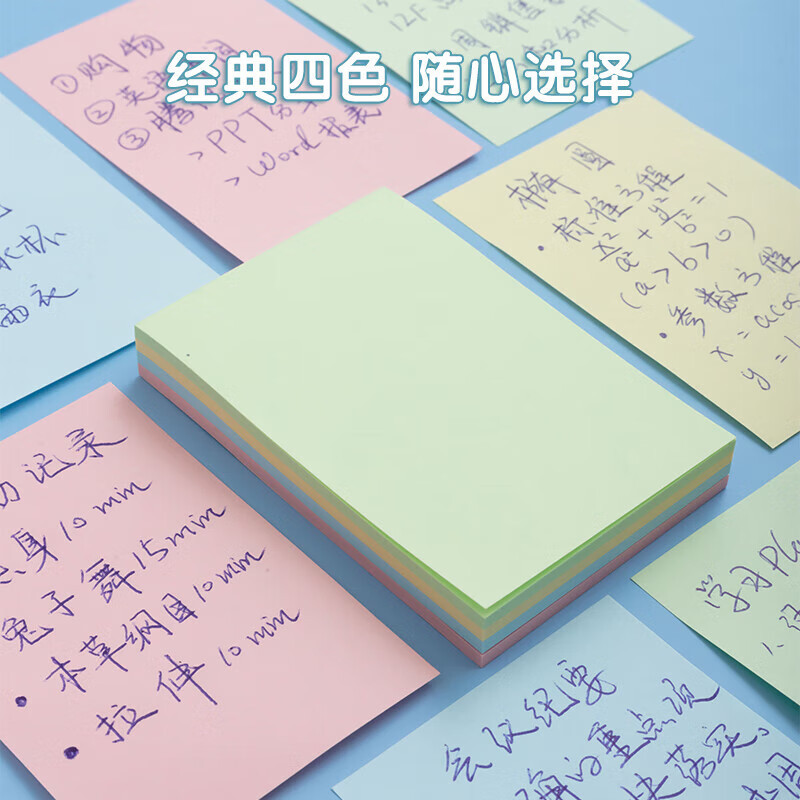 经典四色 随心选择
①购物
②英语
③腾
>PPT分
>Word报表
12F
周销售
分析
椭圆
• 标准方程
x²/a² + y²/b² = 1
(a>b>0)
• 参数方程
x = acos
y =
水杯
雨衣
记录
身10min
兔子舞15min
• 本草纲目10min
• 拉伸10min
学习
会议纪要
的重点项
落实。
周